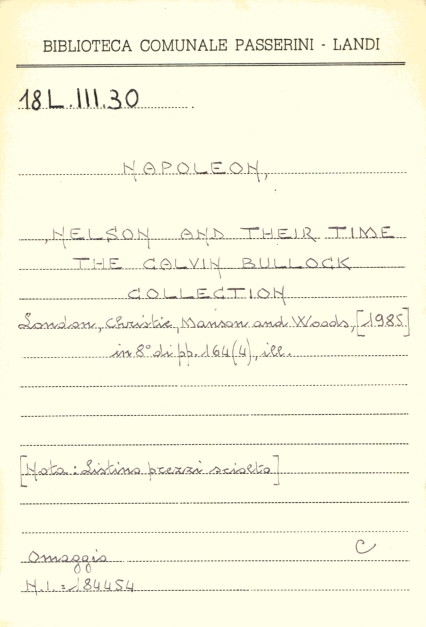 BIBLIOTECA COMUNALE PASSERINI - LANDI
18L.III.30
NAPOLEON,
,NELSON AND THEIR TIME
THE CALVIN BULLOCK
COLLECTION
London, Christie, Manson and Woods, [1985]
in 8° di pp. 164(4), ill.
[Nota: Listino prezzi sciolto]
C
Omaggio
N.I. = 184454